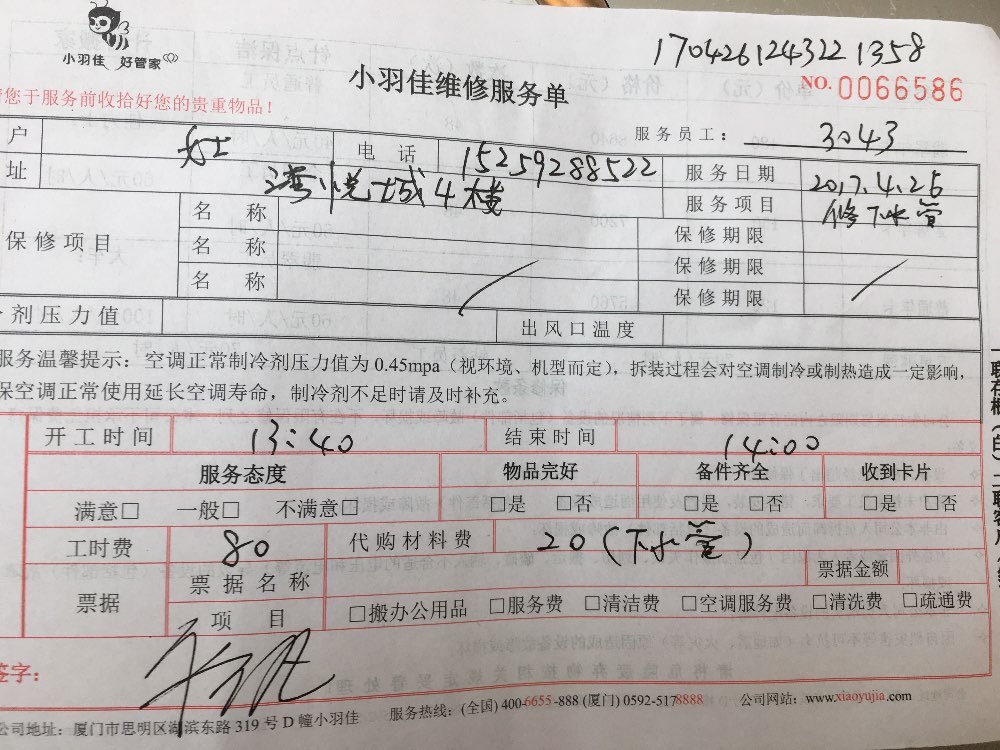 小羽佳 好管家
1704261243221358
小羽佳维修服务单
NO. 0066586
您于服务前收拾好您的贵重物品！
服务员工： 3043
户 女士 电话 15259288522 服务日期 2017.4.26
址 湾悦城4楼 服务项目 修下水管
保修项目 名称 保修期限
名称 保修期限
名称 保修期限
剂压力值 出风口温度
服务温馨提示：空调正常制冷剂压力值为0.45mpa（视环境、机型而定），拆装过程会对空调制冷或制热造成一定影响，
保空调正常使用延长空调寿命，制冷剂不足时请及时补充。
开工时间 13:40 结束时间 14:00
服务态度 物品完好 备件齐全 收到卡片
满意□ 一般□ 不满意□ □是 □否 □是 □否 □是 □否
工时费 80 代购材料费 20（下水管）
票据 票据名称 票据金额
项目 □搬办公用品 □服务费 □清洁费 □空调服务费 □清洗费 □疏通费
签字：
公司地址：厦门市思明区湖滨东路319号D幢小羽佳 服务热线：(全国) 400-6655-888 (厦门) 0592-5178888 公司网站：www.xiaoyujia.com